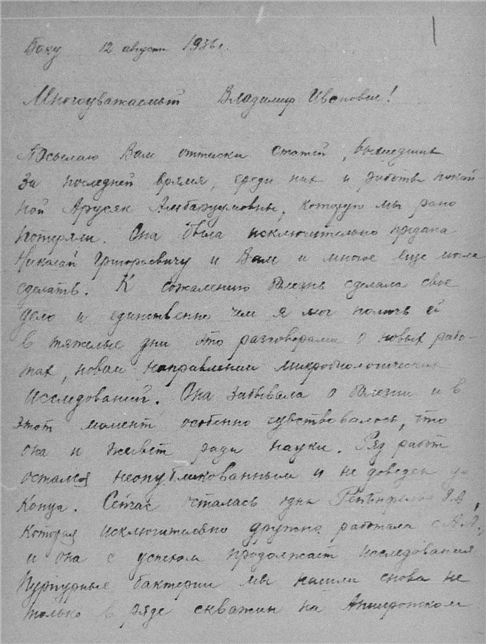 1
Баку 12 августа 1936 г.
Многоуважаемый Владимир Иванович!
Посылаю Вам оттиски статей, вышедших
за последнее время, среди них и работа покой-
ной Арусяк Амбарцумовны, которую мы рано
потеряли. Она была исключительно предана
Николай Григорьевичу и Вам и многое еще могла
сделать. К сожалению болезнь сделала свое
дело и единственно чем я мог помочь ей
в тяжелые дни это разговорами о новых рабо-
тах, новом направлении микробиологических
исследований. Она забывала о болезни и в
этот момент особенно чувствовалось, что
она и живет ради науки. Ряд работ
остался неопубликованным и не доведен до
конца. Сейчас осталась одна
которая исключительно дружно работала с А.А.
и она с успехом продолжает исследования
Пурпурные бактерии мы нашли снова не
только в ряде скважин на Апшеронском